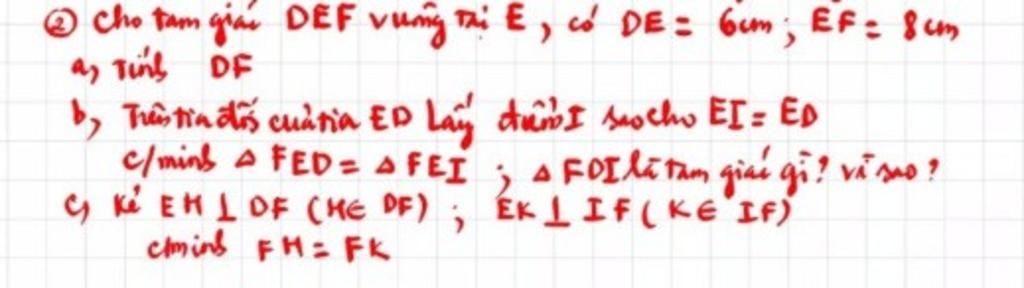 ② Cho tam giác DEF vuông tại E, có DE = 6cm; EF = 8cm
a, Tính DF
b, Trên tia đối của tia ED lấy điểm I sao cho EI = ED
c/minh △ FED = △ FEI ; △ FDI là tam giác gì? vì sao?
c, Kẻ EH ⊥ DF (H ∈ DF) ; EK ⊥ IF (K ∈ IF)
c/minh FH = FK